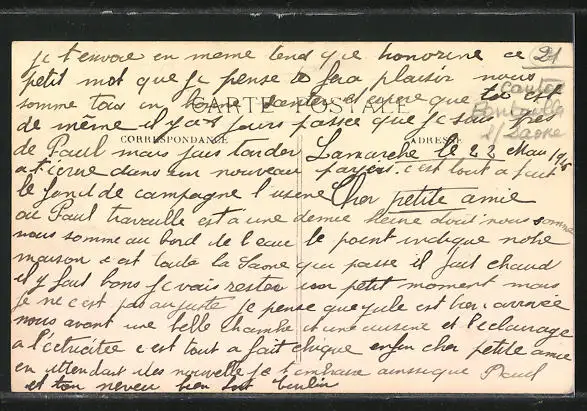 je t'envoie en meme tend que honorine ce
petit mot que je pense te fera plaisir nous
somme tous en bone santer et espere que toi est
de même il y a 8 jours passee que je suis pres
CARTE POSTALE
CORRESPONDANCE
ADRESSE
21
Cante
Pontailler
s/ Saone
de Paul mais jais tarder
a t'ecrire dans un nouveau payers. c'est tout a fait
le fond de campagne l'usene
Lamarche le 22 Mars 1915
Cher petite amie
ou Paul travaille est a une demie heure dont nous somme
nous somme au bord de l'eau le point indique notre
maison c'est toute la Saone qui passe il fait chaud
il y fait bons je vais rester un petit moment mais
je ne c'est pas au juste je pense que jule est arrivée
nous avont une belle chambre et une cuisine et l'eclairage
a l'éctricitée c'est tout a fait chique enfin cher petite amie
en attendant des nouvelle je t'embrasse ainssique Paul
et ton neveu bien fort